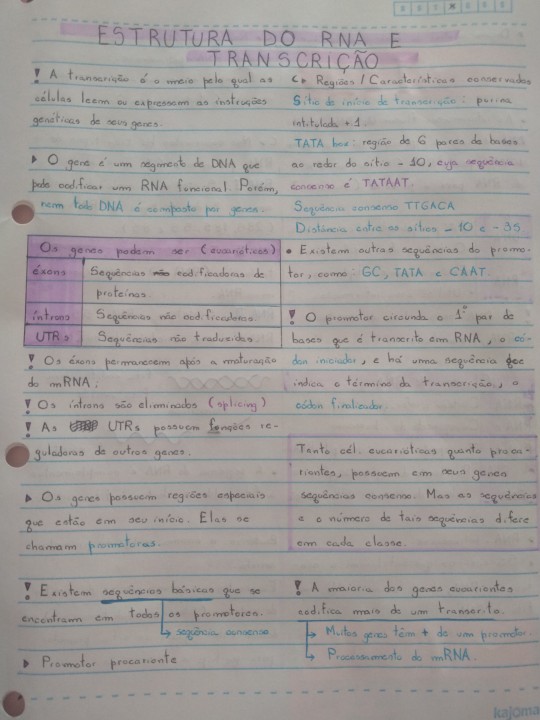 ESTRUTURA DO RNA E
TRANSCRIÇÃO
! A transcrição é o meio pelo qual as
células leem ou expressam as instruções
genéticas de seus genes.
▶ O gene é um segmento de DNA que
pode codificar um RNA funcional. Porém,
nem todo DNA é composto por genes.
Os genes podem ser (eucarióticos)
éxons Sequências codificadoras de
proteínas.
íntrons Sequências não codificadoras.
UTRs Sequências não traduzidas.
! Os éxons permanecem após a maturação
do mRNA;
! Os íntrons são eliminados (splicing)
! As UTRs possuem funções re-
guladoras de outros genes.
▶ Os genes possuem regiões especiais
que estão em seu início. Elas se
chamam promotoras.
! Existem sequências básicas que se
encontram em todos os promotores.
↳ seqência consenso
▶ Promotor procarionte
↳ Regiões / Características conservadas
Sítio de início de transcrição: purina
intitulada +1
TATA box: região de 6 pares de bases
ao redor do sítio -10, cuja sequência
consenso é TATAAT.
Sequência consenso TTGACA
Distância entre os sítios -10 e -35
• Existem outras sequências do promo-
tor, como: GC, TATA e CAAT.
! O promotor circunda o 1° par de
bases que é transcrito em RNA, o có-
don iniciador, e há uma sequência que
indica o término da transcrição, o
códon finalizador.
Tanto cél. eucarióticas quanto proca-
riontes, possuem em seus genes
sequências consenso. Mas as sequências
e o número de tais sequências difere
em cada classe.
! A maioria dos genes eucariontes
codifica mais de um transcrito.
↳ Muitos genes têm + de um promotor.
↳ Processamento do mRNA.
kajoma